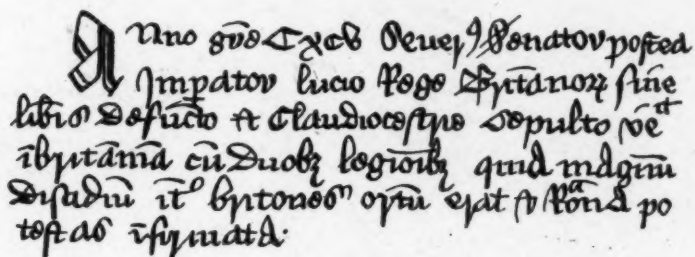 Anno gr̄e Cxcv Seuerꝰ Senator postea
Imperator lucio Rege Britanorꝝ sine
libris defūcto et Claudiocestrie sepulto vēit
ī britāniā cū duobꝫ legioībꝫ quia magnū
disidiū it̄ britones ortū erat et Romana po
testas īfirmata.